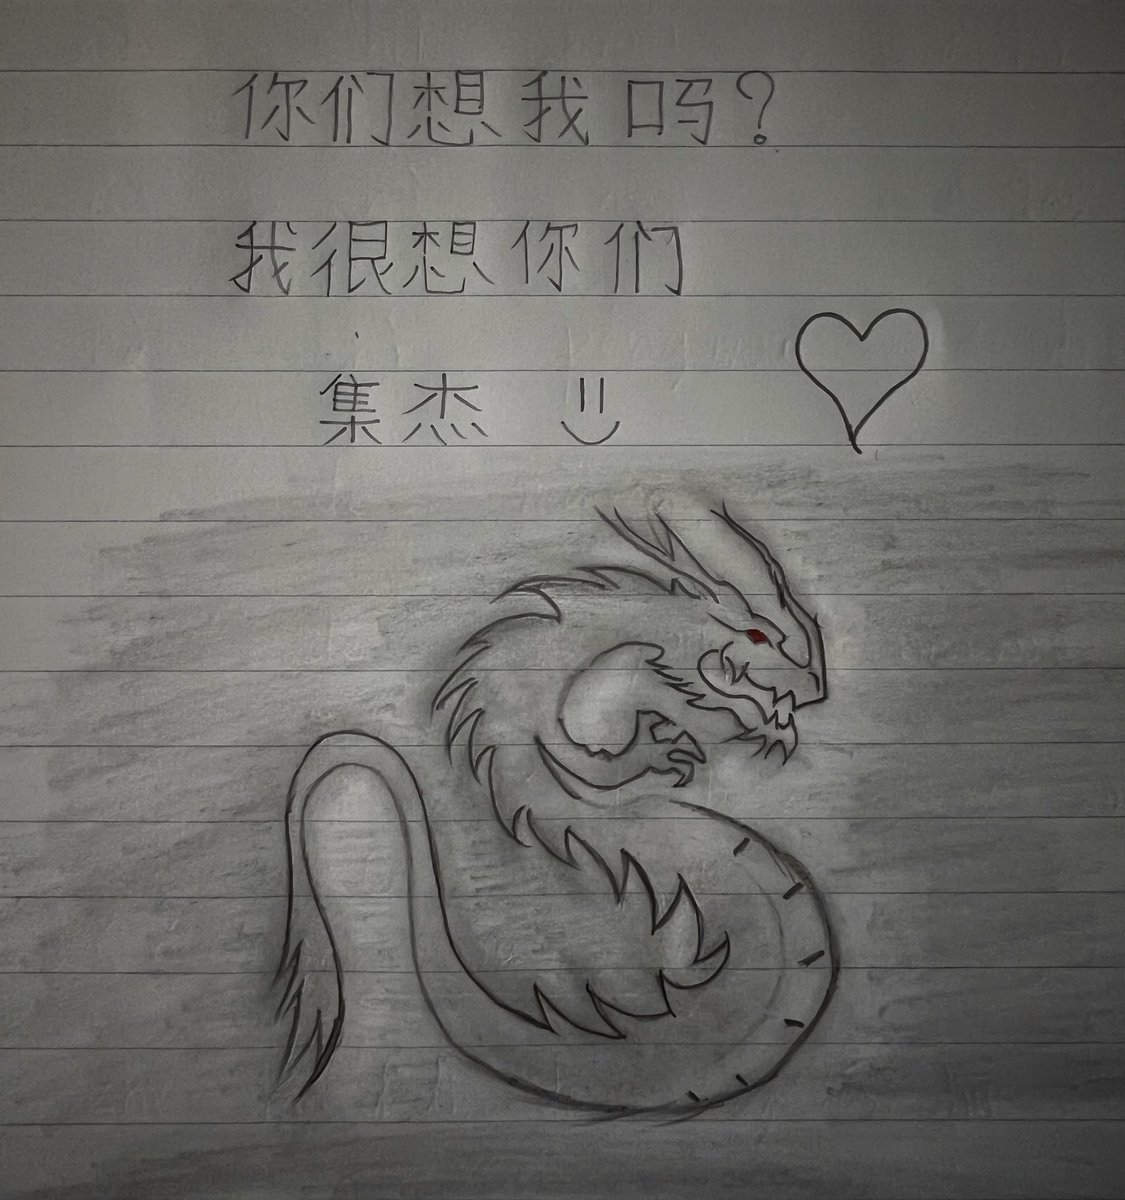 你们想我吗？
我很想你们
集杰